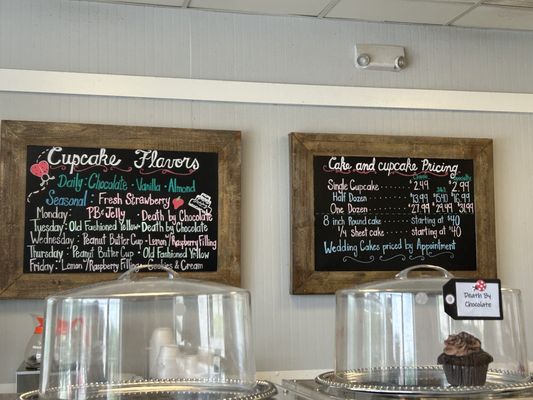 Cupcake Flavors
Daily: Chocolate · Vanilla · Almond
Seasonal: Fresh Strawberry
Monday PB & Jelly · Death by Chocolate
Tuesday: Old Fashioned Yellow · Death by Chocolate
Wednesday: Peanut Butter Cup · Lemon w/Raspberry Filling
Thursday: Peanut Butter Cup · Old Fashioned Yellow
Friday: Lemon w/Raspberry Filling · Cookies & Cream
Cake and Cupcake Pricing
Specialty
Single Cupcake 2.49 2.99
Half Dozen $13.99 $15.40 $16.99
One Dozen 27.99 29.49 31.99
8 inch Round cake starting at $40
1/4 sheet cake starting at $40
Wedding Cakes priced by Appointment
Death By
Chocolate